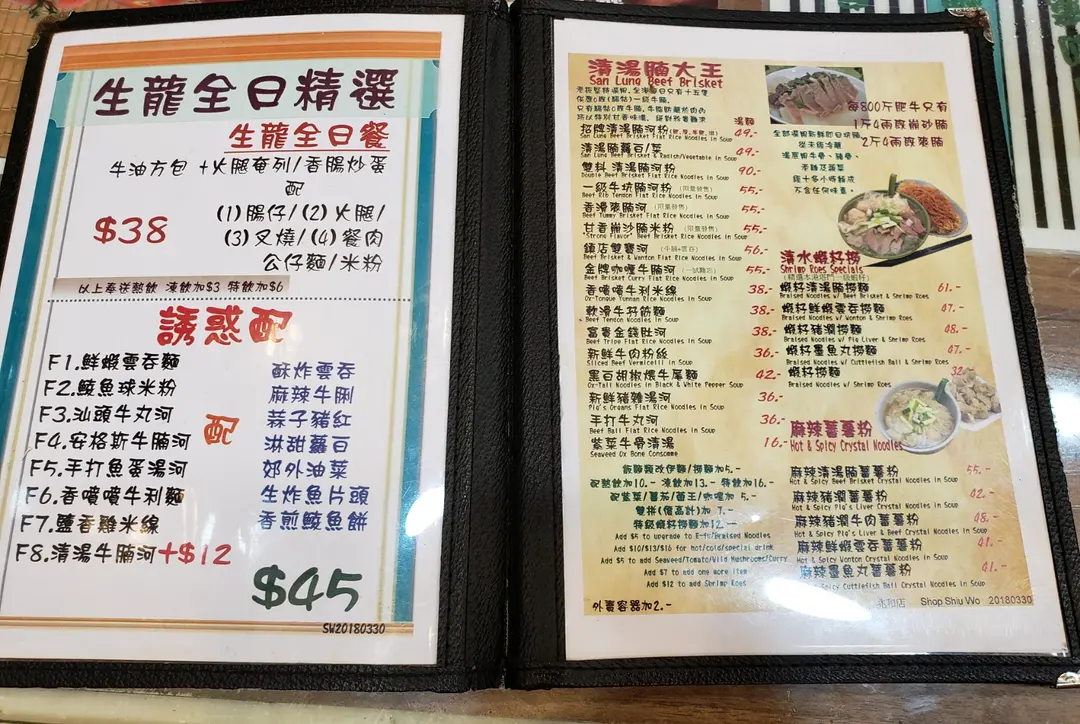 生龍全日精選
生龍全日餐
牛油方包 +火腿奄列/香腸炒蛋
配
$38
(1)腸仔/(2)火腿/
(3)叉燒/(4)餐肉
公仔麵/米粉
以上奉送熱飲 凍飲加$3 特飲加$6
誘惑配
F1.鮮蝦雲吞麵
F2.鯪魚球米粉
F3.汕頭牛丸河
F4.安格斯牛腩河
F5.手打魚蛋湯河
F6.香噴噴牛利麵
F7.鹽香雞米線
F8.清湯牛腩河+$12
配
酥炸雲吞
麻辣牛脷
蒜子豬紅
淋甜蘿白
郊外油菜
生炸魚片頭
香煎鯪魚餅
$45
SW20180330
清湯腩大王
San Lung Beef Brisket
每800斤肥牛只有
1斤4兩既崩砂腩
2斤4兩既爽腩
全部選用新鮮即日坑腩
從未經冷藏
湯底用牛骨、豬骨、
老雞及蔬菜
經十多小時熬成
不含任何味素。
湯麵
招牌清湯腩河粉 49.-
San Lung Beef Brisket Flat Rice Noodles in Soup
清湯腩蘿白/菜 49.-
San Lung Beef Brisket & Radish/Vegetable in Soup
雙料 清湯腩河粉 90.-
Double Beef Brisket Flat Rice Noodles in Soup
一級牛坑腩河粉 (限量發售) 55.-
Beef Rib Tendon Flat Rice Noodles in Soup
香滑爽腩河粉 (限量發售) 55.-
Beef Tummy Brisket Flat Rice Noodles in Soup
甘香崩沙腩米粉 (限量發售) 55.-
"Strong Flavor" Beef Brisket Rice Noodles in Soup
鎮店雙寶河 (牛腩+雲吞) 56.-
Beef Brisket & Wonton Flat Rice Noodles in Soup
金牌咖喱牛腩河 (一試難忘) 55.-
Beef Brisket Curry Flat Rice Noodles in Soup
香噴噴牛利米線 38.-
Ox-Tongue Yunnan Rice Noodles in Soup
軟滑牛孖筋麵 38.-
Beef Tendon Noodles in Soup
富貴金錢肚河 38.-
Beef Tripe Flat Rice Noodles in Soup
新鮮牛肉粉絲 36.-
Sliced Beef Vermicelli in Soup
黑白胡椒煨牛尾麵 42.-
Ox-Tail Noodles in Black & White Pepper Soup
新鮮豬雜湯河 36.-
Pig's Organs Flat Rice Noodles in Soup
手打牛丸河 36.-
Beef Ball Flat Rice Noodles in Soup
紫菜牛骨清湯 16.-
Seaweed Ox Bone Consomme
飯麵類改伊麵/撈麵加5.-
配熱飲加10.- 凍飲加13.- 特飲加16.-
配紫菜/蕃茄/菌王/咖喱加 5.-
雙拼(價高計)加 7.-
特級蝦籽撈麵加12.-
Add $5 to upgrade to E-fu/Braised Noodles
Add $10/$13/$16 for hot/cold/special drink
Add $5 to add Seaweed/Tomato/Wild Mushrooms/Curry
Add $7 to add one more item
Add $12 to add Shrimp Roes
外賣容器加2.-
清水蝦籽撈
Shrimp Roes Specials
蝦籽清湯腩撈麵 61.-
Braised Noodles w/ Beef Brisket & Shrimp Roes
蝦籽鮮蝦雲吞撈麵 47.-
Braised Noodles w/ Wonton & Shrimp Roes
蝦籽豬潤撈麵 48.-
Braised Noodles w/ Pig Liver & Shrimp Roes
蝦籽墨魚丸撈麵 47.-
Braised Noodles w/ Cuttlefish Ball & Shrimp Roes
蝦籽撈麵 32.-
Braised Noodles w/ Shrimp Roes
麻辣蕃薯粉
Hot & Spicy Crystal Noodles
麻辣清湯腩蕃薯粉 55.-
Hot & Spicy Beef Brisket Crystal Noodles in Soup
麻辣豬潤蕃薯粉 42.-
Hot & Spicy Pig's Liver Crystal Noodles in Soup
麻辣豬潤牛肉蕃薯粉 48.-
Hot & Spicy Pig's Liver & Beef Crystal Noodles in Soup
麻辣鮮蝦雲吞蕃薯粉 41.-
Hot & Spicy Wonton Crystal Noodles in Soup
麻辣墨魚丸蕃薯粉 41.-
Spicy Cuttlefish Ball Crystal Noodles in Soup
兆和店 Shop Shiu Wo 20180330